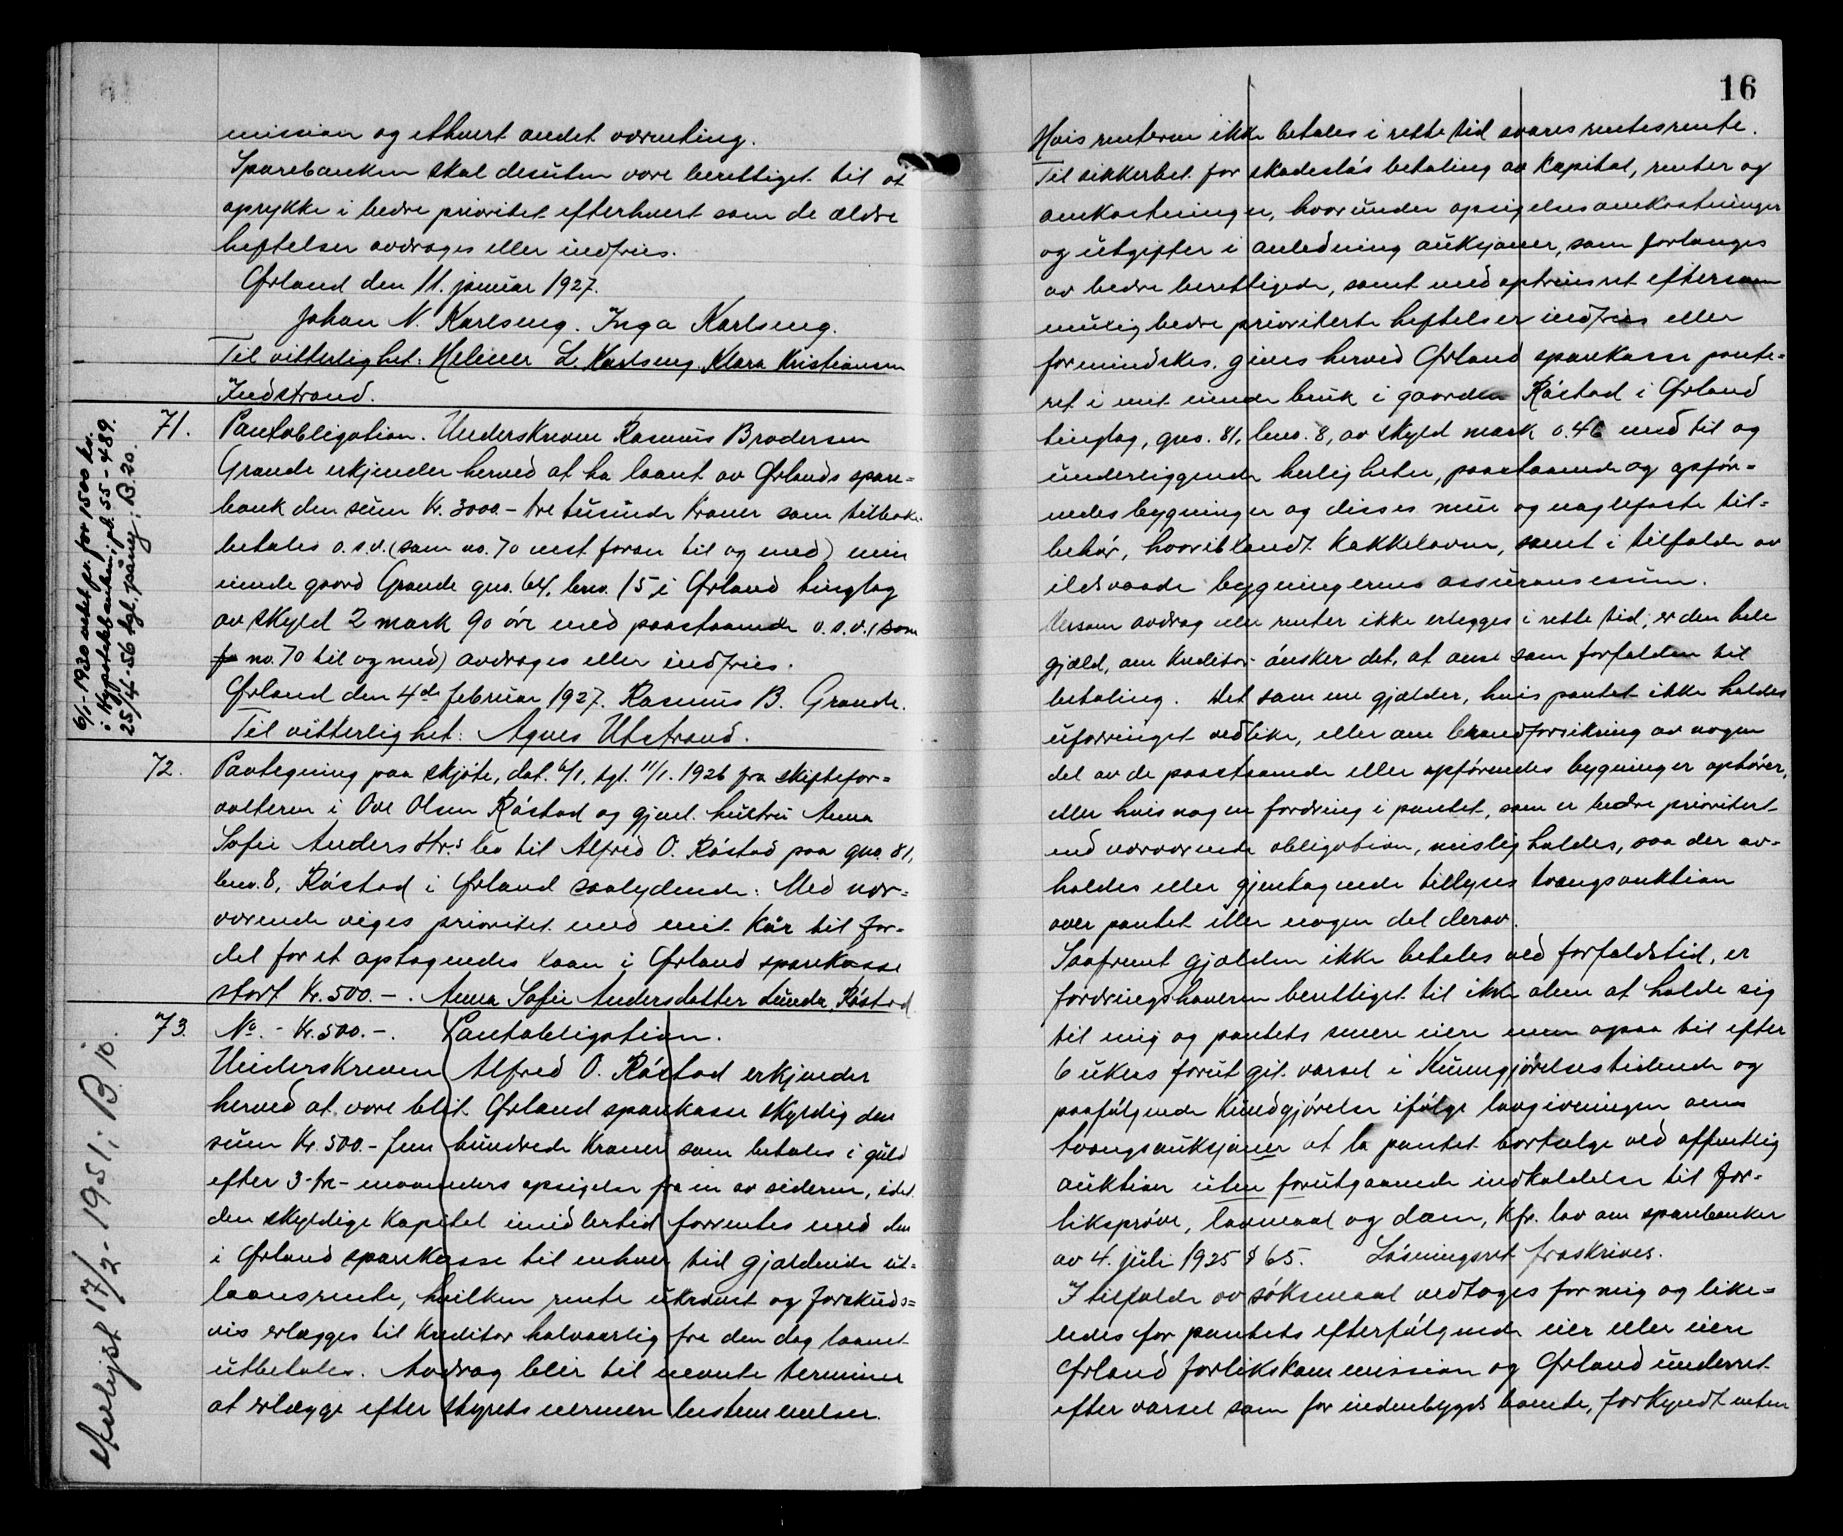 mission og ethvert andet værneting.
Sparebanken skal desuten være berettiget til at
oprykke i bedre prioritet efterhvert som de ældre
heftelser avdrages eller indfries.
Ørland den 11. januar 1927.
Johan N. Karlseng. Inga Karlseng.
Til vitterlighet: Helmer L. Karlseng. Klara Kristiansen
Indstrand.
71. Pantobligation. Underskreven Rasmus Brodersen
Grande erkjender herved at ha laant av Ørlands spare=
bank den sum Kr. 3000.- tre tusinde kroner som tilbake
betales o.s.v. (som no. 70 nest foran til og med) min
eiende gaard Grande gno. 64, bno. 15, i Ørland tinglag
av skyld 2 mark 90 øre med paastaaende o.s.v. (som
no. 70 til og med) avdrages eller indfries.
Ørland den 4de februar 1927. Rasmus B. Grande.
Til vitterlighet: Agnes Utstrand.
6/1-1930 veket pr. for 1500 kr.
i Hypotekbanken, jd. 55-489.
25/4-56 tgl. påny. B. 20.
72. Paategning paa skjøte, dat. 6/1, tgl. 11/1. 1926 fra skiftefor=
valteren i Ove Olsen Røstad og gjenl. hustru Anna
Sofie Andersdtr.s bo til Alfred O. Røstad paa gno. 81,
bno. 8, Røstad i Ørland saalydende: Med nær=
værende viges prioritet med mit kår til for=
del for et optagendes laan i Ørland sparekasse
stort Kr. 500.-. Anna Sofie Andersdatter Lunde, Røstad
73. No. - Kr. 500.-. Pantobligation.
Underskreven Alfred O. Røstad erkjender
herved at være blit Ørland sparekasse skyldig den
sum Kr. 500.- fem hundrede kroner som betales i guld
efter 3-tre- maaneders opsigelse fra en av siderne, idet
den skyldige kapital imidlertid forrentes med den
i Ørland sparekasse til enhver tid gjældende ut=
laansrente, hvilken rente ukrævet og forskuds=
vis erlægges til kreditor halvaarlig fra den dag laanet
utbetales. Avdrag blir til nevnte terminer
at erlægge efter styrets nermere bestemmelser.
Avlyst 17/2-1951; B. 10.
16
Hvis renterne ikke betales i rette tid svares rentesrente.
Til sikkerhet for skadesløs betaling av kapital, renter og
omkostninger, hvorunder opsigelsesomkostninger
og utgifter i anledning auksjoner, som forlanges
av bedre berettigede, samt med optrinsret eftersom
mulig bedre prioriterte heftelser indfries eller
formindskes, gives herved Ørland sparekasse pante=
ret i mit eiende bruk i gaarden Røstad i Ørland
tinglag, gno. 81, bno. 8, av skyld mark 0.46 med til og
underliggende herligheter, paastaaende og opfør=
nedes bygninger og disses mur og naglefaste til=
behør, hvoriblandt kakkelovne, samt i tilfælde av
ildsvaade bygningernes assuransesum.
Dersom avdrag eller renter ikke erlegges i rette tid, er den hele
gjæld, om kreditor ønsker det, at anse som forfalden til
betaling. Det samme gjælder, hvis pantet ikke holdes
uforringet vedlike, eller om brandforsikring av nogen
del av de paastaaende eller opførendes bygninger ophører,
eller hvis nogen fordring i pantet, som er bedre prioritert
end nærværende obligation, misligholdes, saa der av=
holdes eller gjentagende tillyses tvangsauktion
over pantet eller nogen del derav.
Saafremt gjælden ikke betales ved forfaldstid, er
fordringshaveren berettiget til ikke alene at holde sig
til mig og pantets senere eiere men ogsaa til efter
6 ukers forut git varsel i Kunngjørelsestidende og
paafølgende kundgjørelse ifølge lovgivningen om
tvangsauksjoner at la pantet bortselge ved offentlig
auktion uten forutgaaende indkaldelse til for=
liksprøve, lovmaal og dom, kfr. lov om sparebanker
av 4. juli 1925 § 65. Løsningsret fraskrives.
I tilfælde av søksmaal vedtages for mig og like=
ledes for pantets efterfølgende eier eller eiere
Ørland forlikskommission og Ørland underret
efter varsel som for indenbygds boende, forkyndt enten